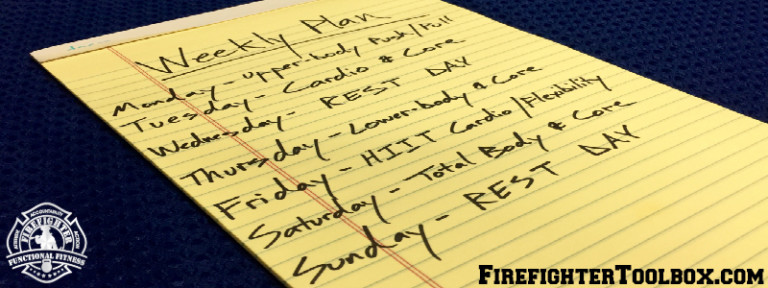 Weekly Plan
Monday - Upper-body Push/Pull
Tuesday - Cardio & Core
Wednesday - REST DAY
Thursday - Lower-body & Core
Friday - HIIT Cardio/Flexibility
Saturday - Total Body & Core
Sunday - REST DAY
FIREFIGHTER
FUNCTIONAL FITNESS
FIREFIGHTERTOOLBOX.COM